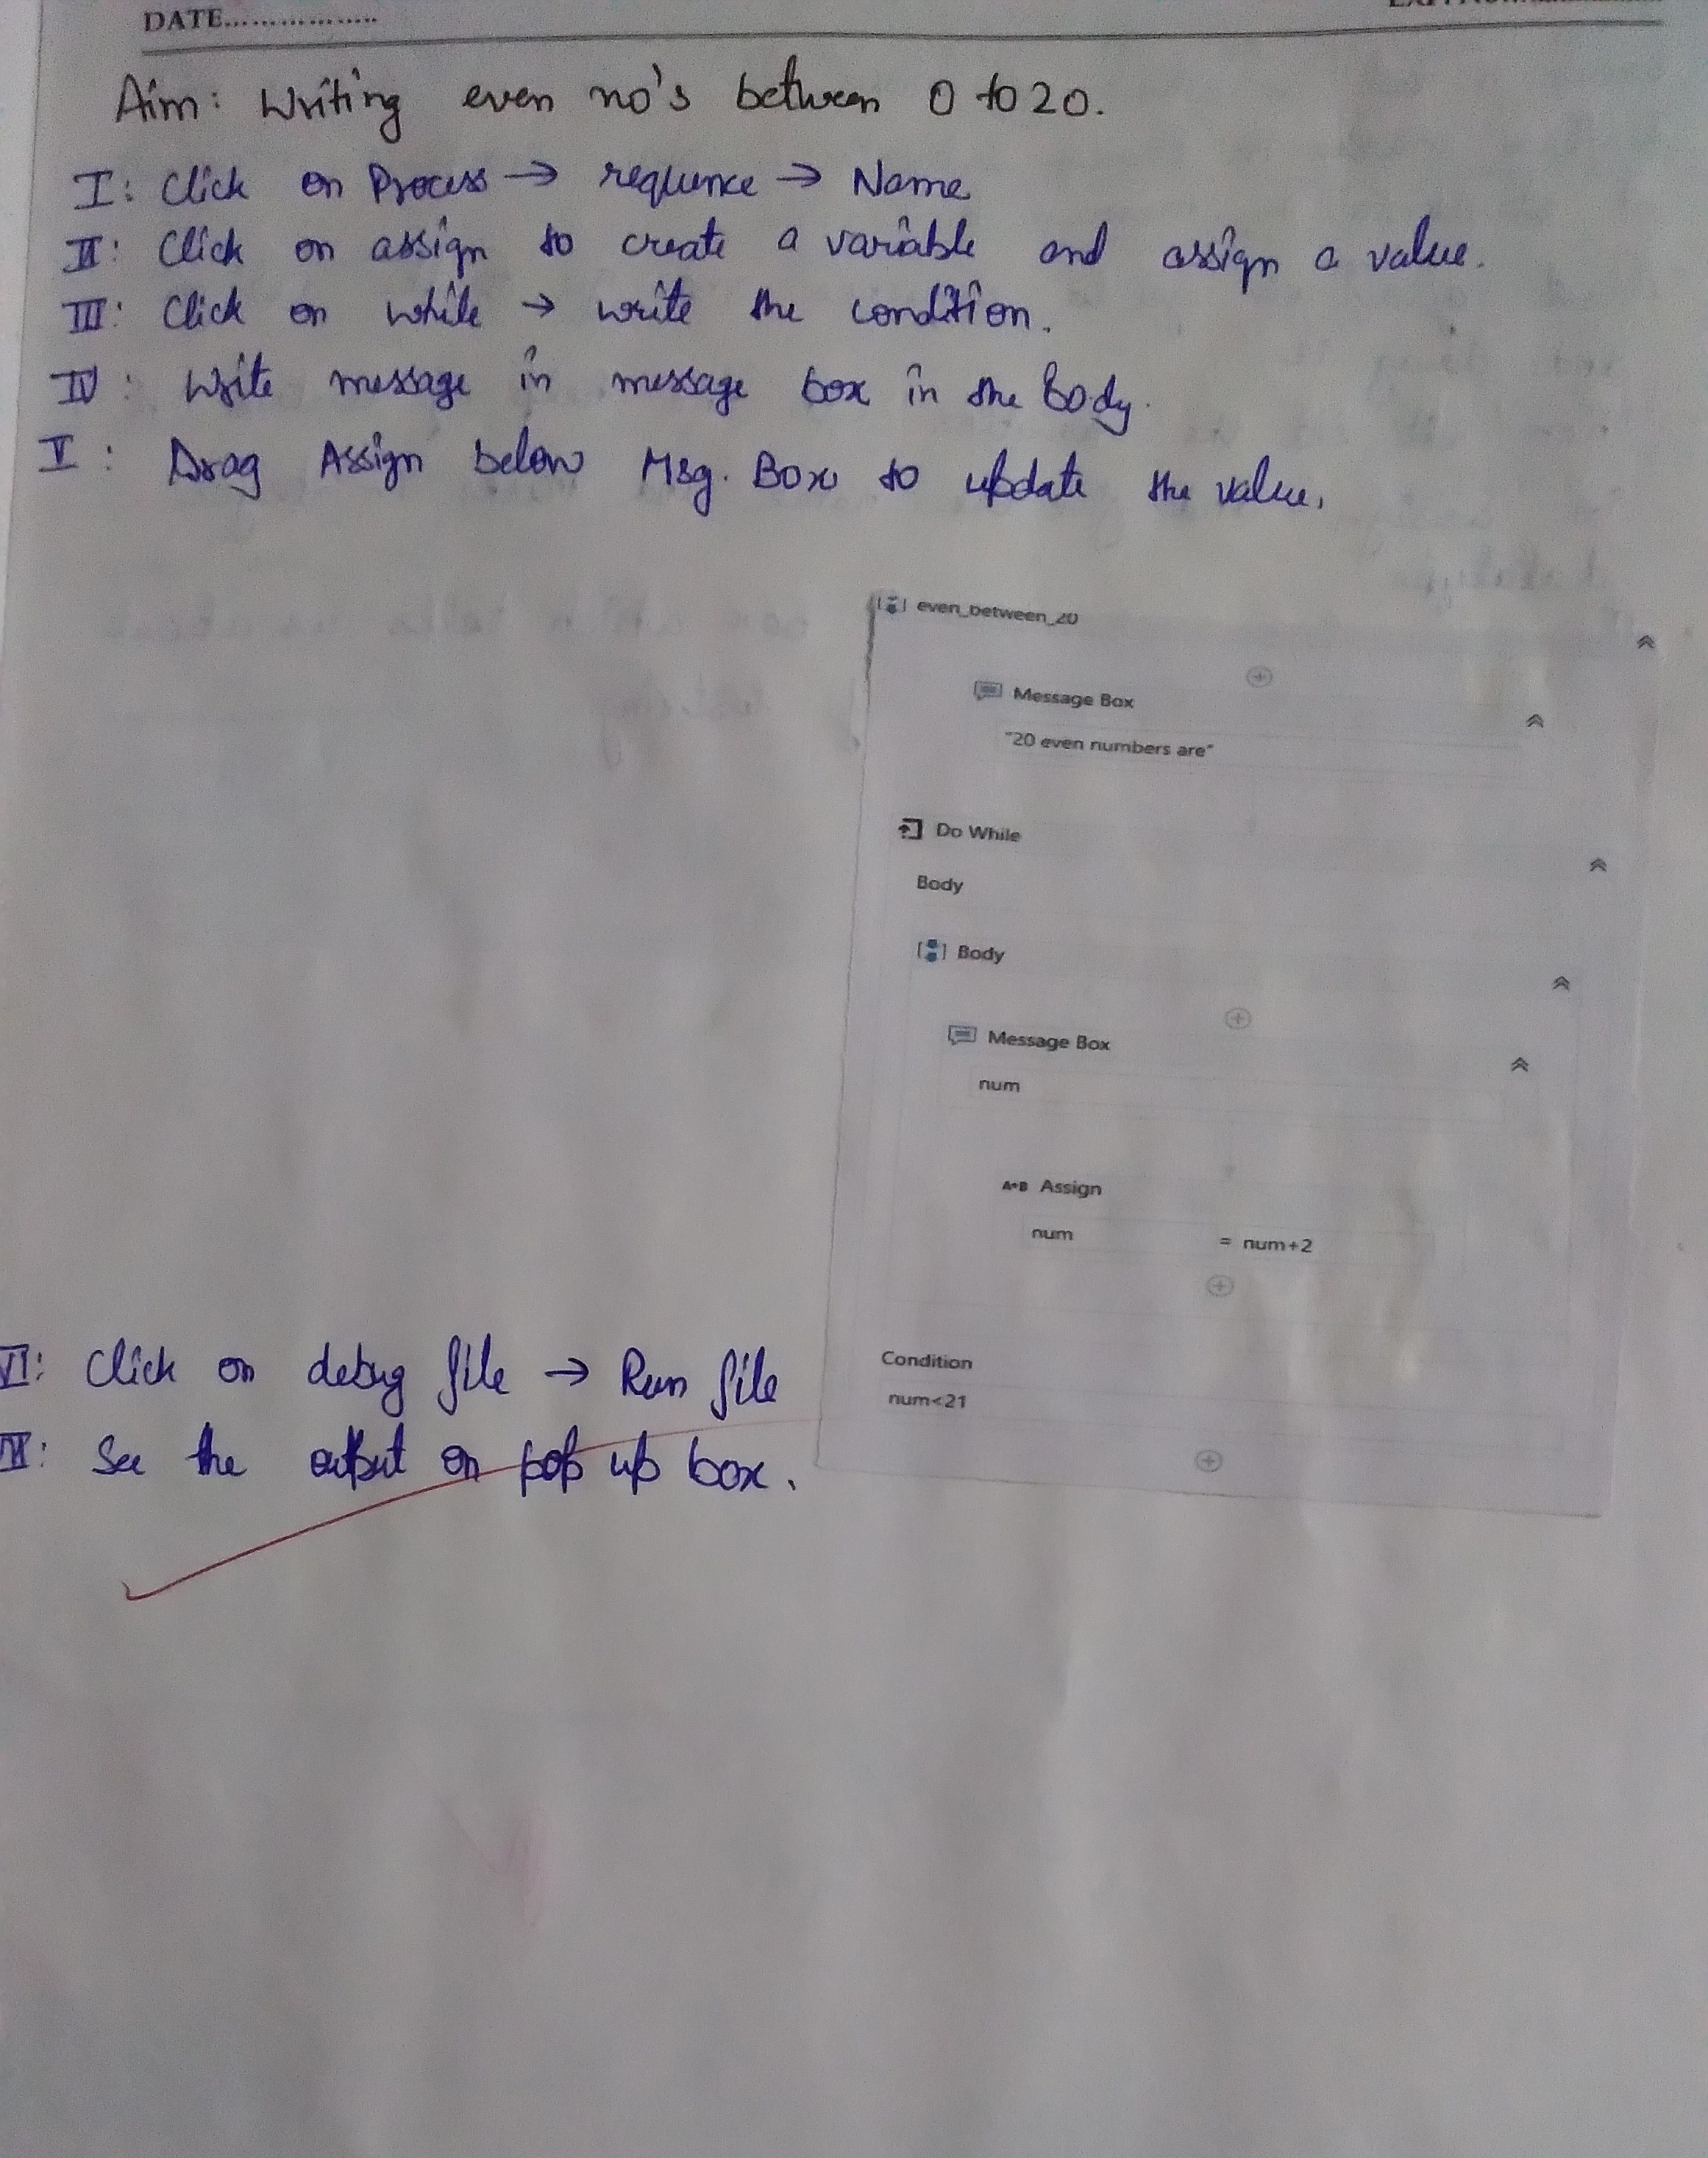 DATE.................
Aim: Writing even no's between 0 to 20.
I: Click on Process → requence → Name
II: Click on assign to create a variable and assign a value.
III: Click on while → write the condition.
IV: Write message in message box in the body.
V: Drag Assign below Msg. Box to update the value.
even_between_20
Message Box
"20 even numbers are"
Do While
Body
Body
Message Box
num
A*B Assign
num = num+2
Condition
num<21
VI: Click on debug file → Run file
VII: See the output on pop up box.